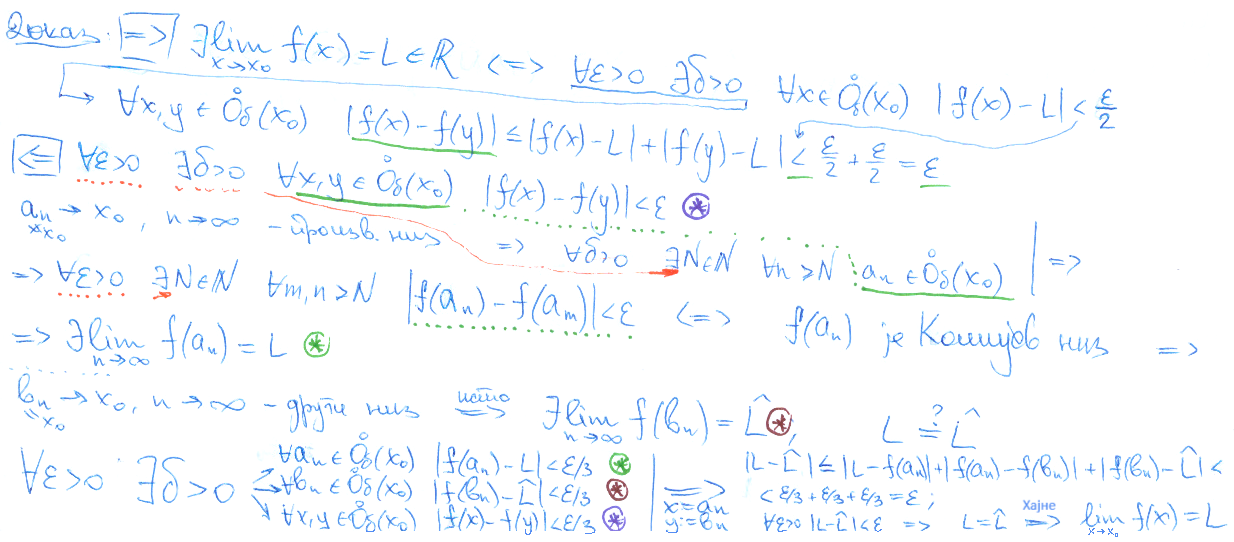 Доказ: |=>| ∃lim_{x→x₀} f(x) = L ∈ ℝ <=> ∀ε>0 ∃δ>0 ∀x∈O̊_δ(x₀) |f(x)-L| < ε/2
∀x,y ∈ O̊_δ(x₀) |f(x)-f(y)| ≤ |f(x)-L| + |f(y)-L| < ε/2 + ε/2 = ε
|<=| ∀ε>0 ∃δ>0 ∀x,y ∈ O̊_δ(x₀) |f(x)-f(y)| < ε ⊛
a_n → x₀, n→∞ - произв. низ => ∀δ>0 ∃N∈ℕ ∀n>N a_n ∈ O̊_δ(x₀) | =>
≠x₀
=> ∀ε>0 ∃N∈ℕ ∀m,n>N |f(a_n)-f(a_m)| < ε <=> f(a_n) је Кошијев низ =>
=> ∃lim_{n→∞} f(a_n) = L ⊛
b_n → x₀, n→∞ - други низ исто => ∃lim_{n→∞} f(b_n) = L̂ ⊛, L ≟ L̂
≠x₀
∀ε>0 ∃δ>0
∀a_n ∈ O̊_δ(x₀) |f(a_n)-L| < ε/3 ⊛
∀b_n ∈ O̊_δ(x₀) |f(b_n)-L̂| < ε/3 ⊛
∀x,y ∈ O̊_δ(x₀) |f(x)-f(y)| < ε/3 ⊛
=>
x:=a_n
y:=b_n
|L-L̂| ≤ |L-f(a_n)| + |f(a_n)-f(b_n)| + |f(b_n)-L̂| <
< ε/3 + ε/3 + ε/3 = ε;
∀ε>0 |L-L̂| < ε => L=L̂ Хајне => lim_{x→x₀} f(x) = L